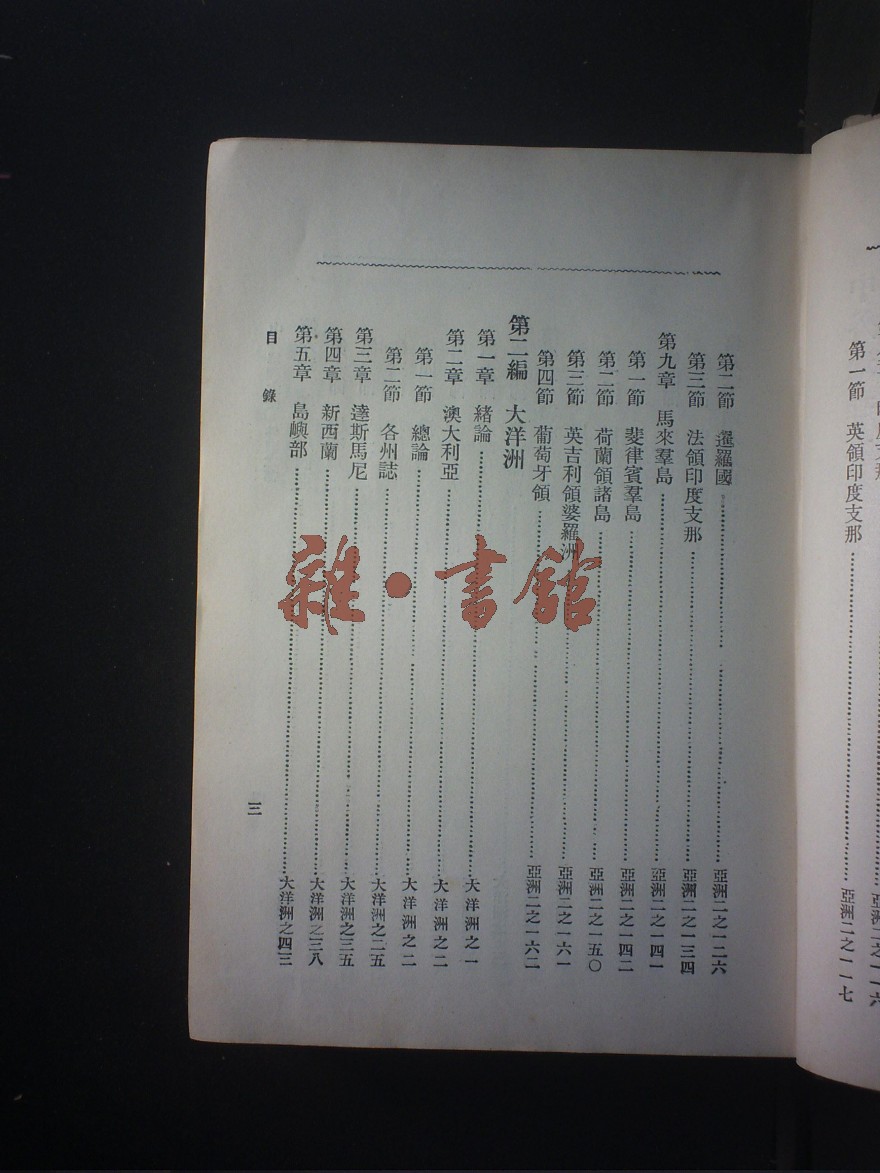 第一節　英領印度支那……亞洲二之一一七
第二節　暹羅國……亞洲二之一二六
第三節　法領印度支那……亞洲二之一三四
第九章　馬來羣島……亞洲二之一四一
第一節　斐律賓羣島……亞洲二之一四二
第二節　荷蘭領諸島……亞洲二之一五〇
第三節　英吉利領婆羅洲……亞洲二之一六一
第四節　葡萄牙領……亞洲二之一六二
第二編　大洋洲
第一章　緒論……大洋洲之一
第二章　澳大利亞……大洋洲之二
第一節　總論……大洋洲之二
第二節　各州誌……大洋洲之二五
第三章　達斯馬尼……大洋洲之三五
第四章　新西蘭……大洋洲之三八
第五章　島嶼部……大洋洲之四三
目錄
三
雜·書館